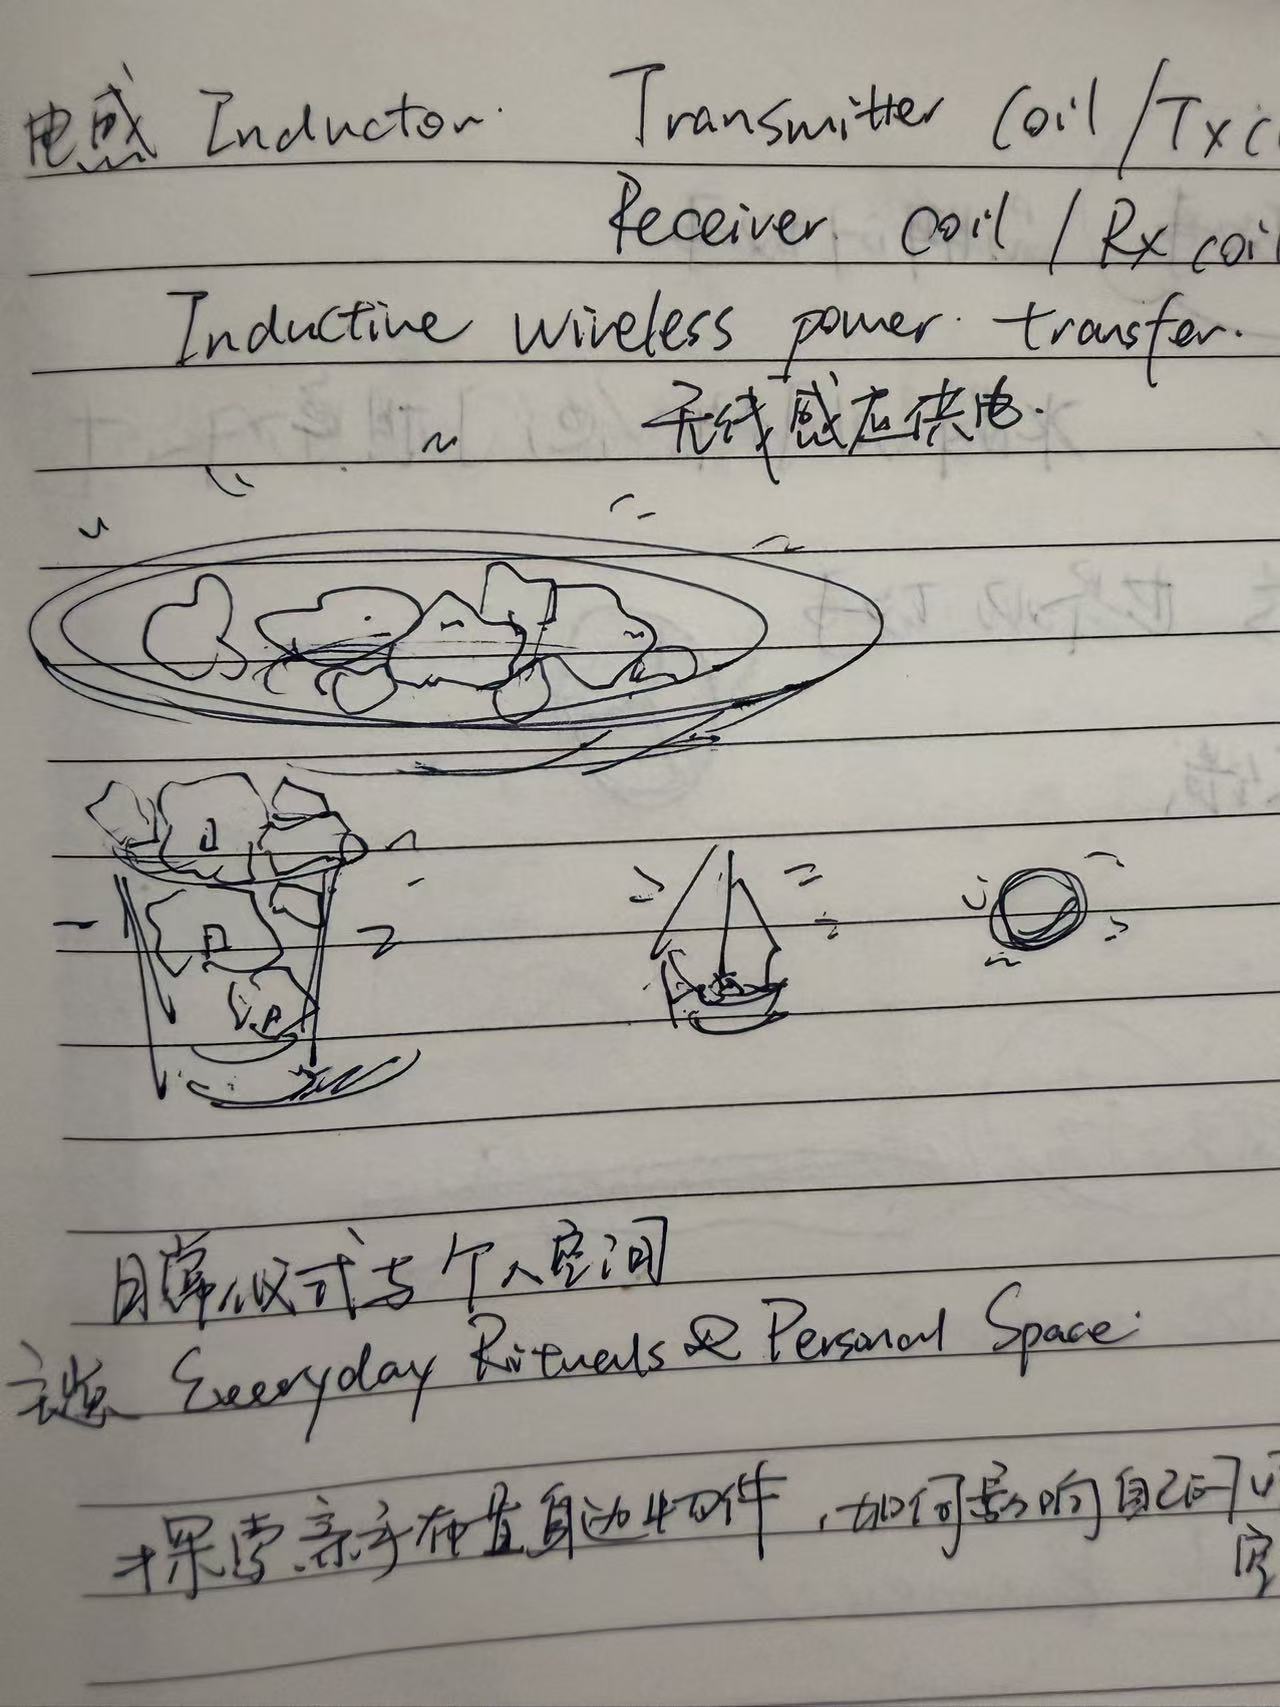 电感 Inductor. Transmitter Coil / Tx c
Receiver. coil / Rx coil
Inductive wireless power. transfer.
无线感应供电.
日常仪式与个人空间
主题 Everyday Rituals & Personal Space.
探索亲手布置身边物件,如何影响自己的